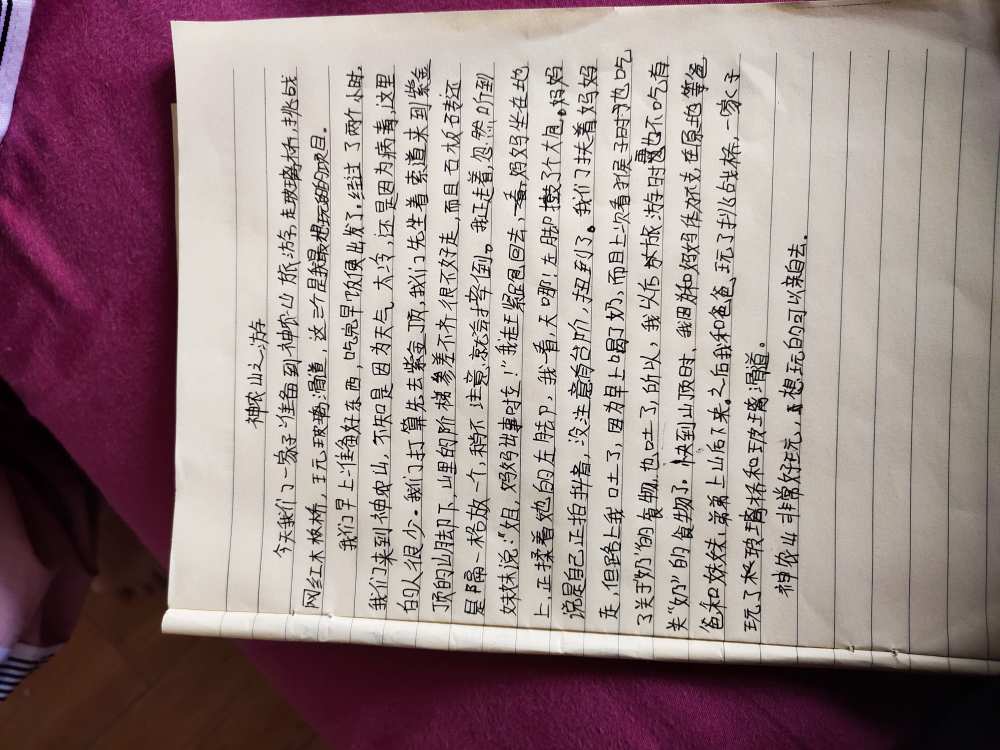 神农山之游
今天我们一家子准备到神农山旅游,走玻璃桥,挑战
网红木板桥,玩玻璃滑道,这三个是我最想玩的项目。
我们早上准备好东西,吃完早饭便出发了.经过了两个小时,
我们来到神农山,不知是因为天气太冷,还是因为病毒,这里
的人很少。我们打算先去紫金顶,我们先坐着索道来到紫金
顶的山脚下,山里的阶梯参差不齐很不好走,而且石板砖还
是隔一格放一个,稍不注意就会摔倒。我正走着忽然听到
妹妹说:“姐,妈妈出事啦!”我赶紧跑回去,一看,妈妈坐在地
上,正揉着她的左脚,我一看,天哪!左脚鼓了个大包。妈妈
说是自己正拍抖音,没注意有台阶,扭到了。我们扶着妈妈
走,但路上我吐了,因为早上喝了奶,而且上次看猴子时也吃
了关于“奶”的食物,也吐了,所以,我以后旅游时再也不吃有
关“奶”的食物了。快到山顶时,我因为和妈妈体力不克在原地等爸
爸和妹妹,弟弟上山后下来。之后我和爸爸玩了挑战桥,一家子
玩了玻璃桥和玻璃滑道。
神农山非常好玩,想玩的可以亲自去。